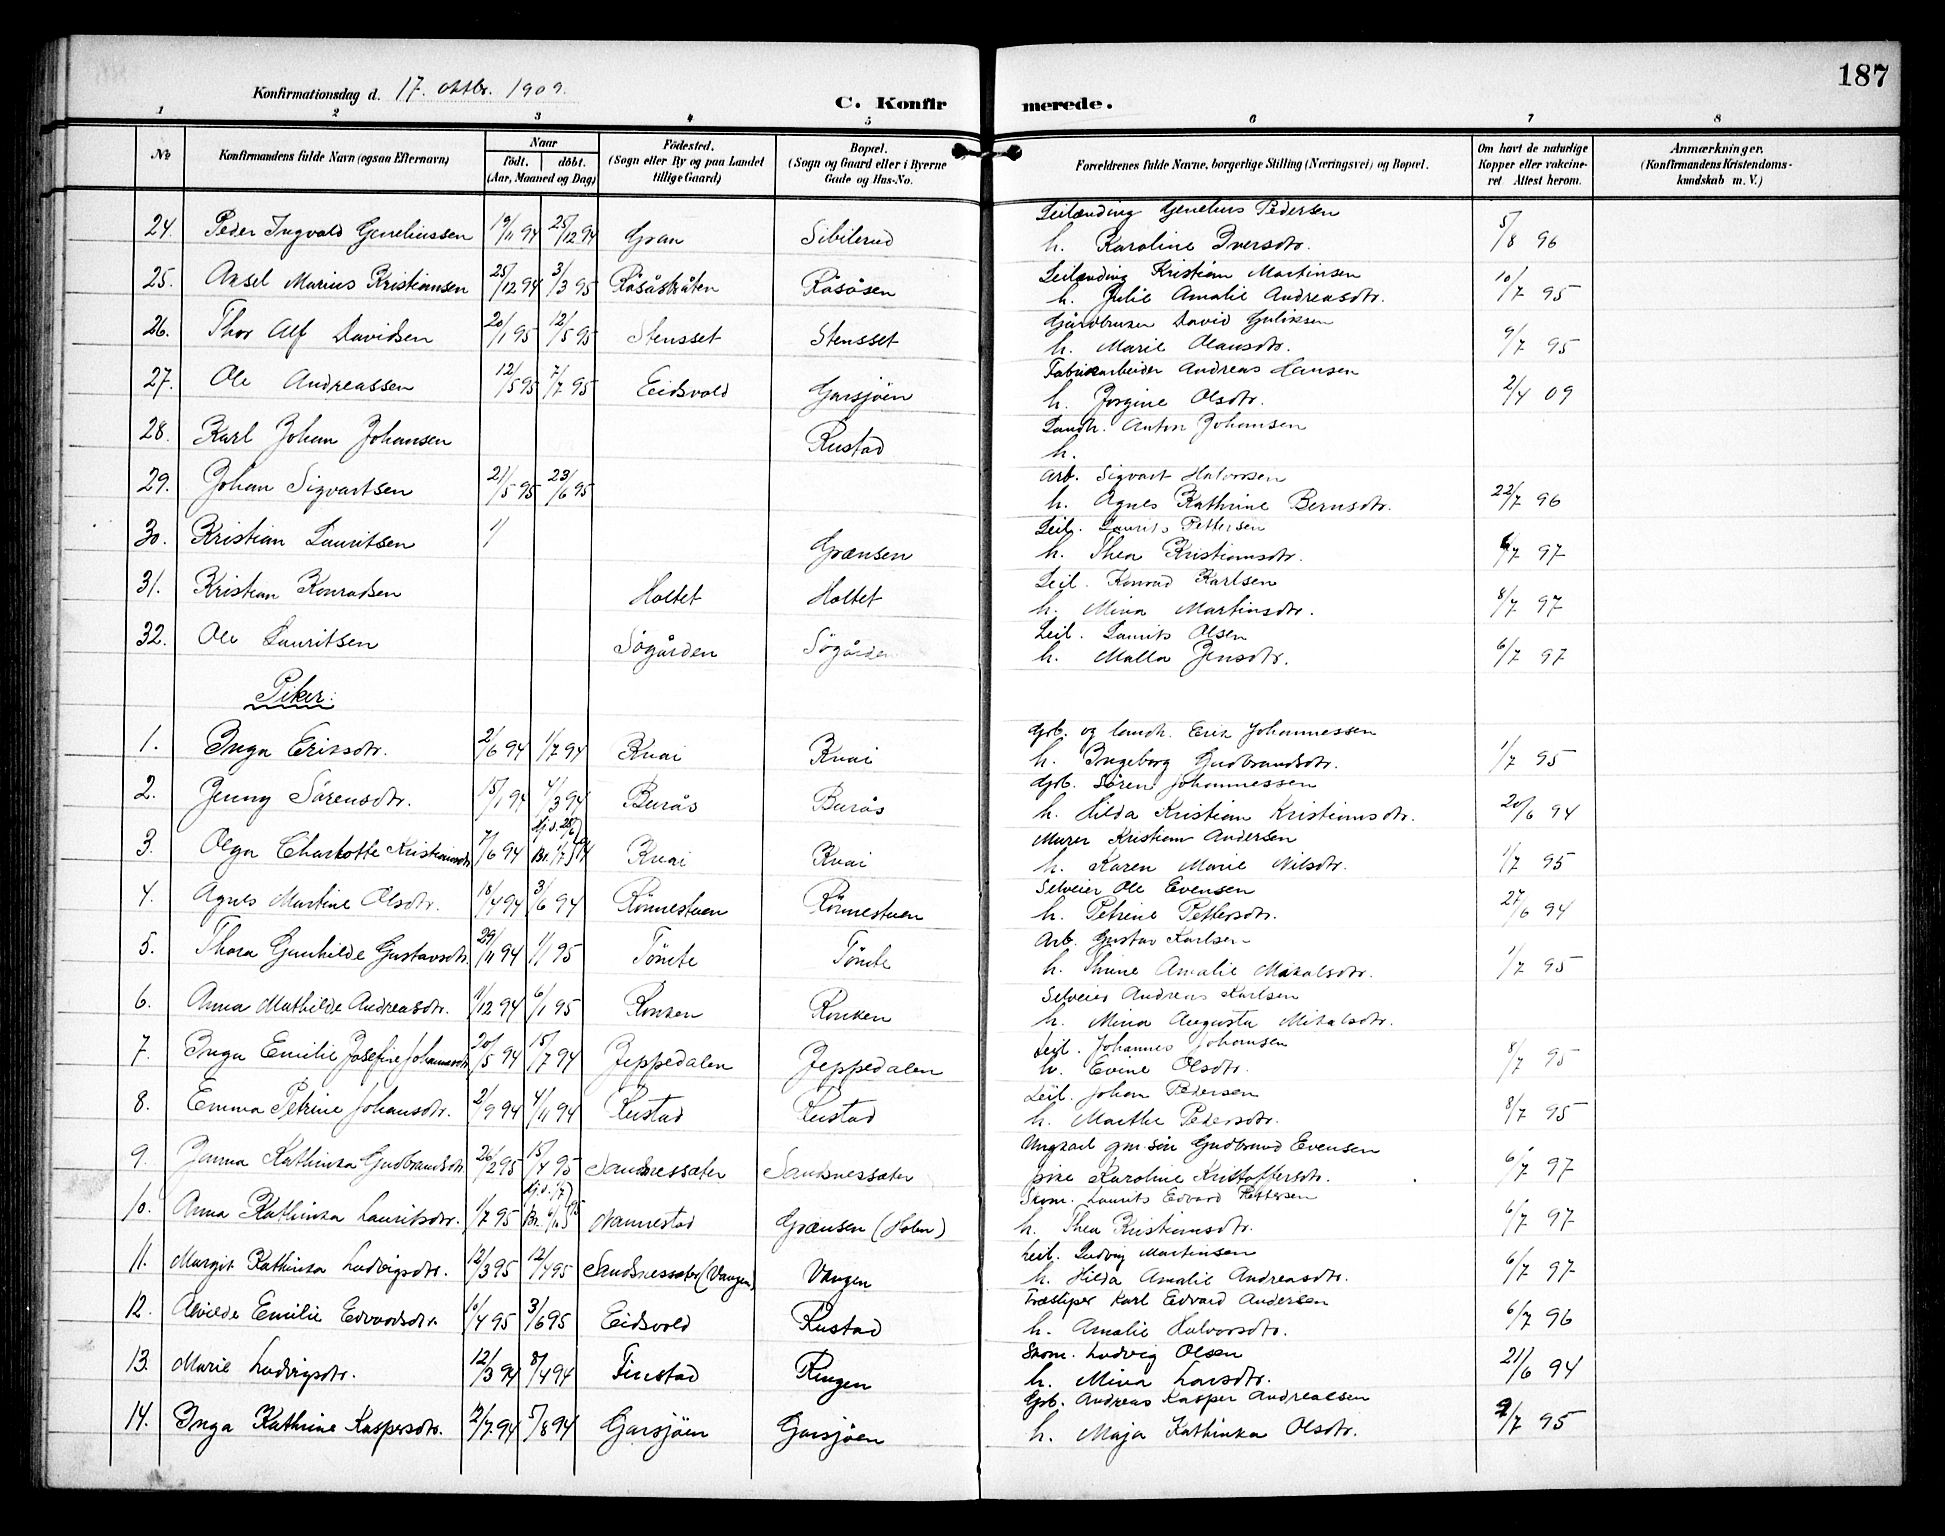 187
Konfirmationsdag d. 17. oktbr. 1909.
C. Konfirmerede.
1 2 3 4 5 6 7 8
№ Konfirmandens fulde Navn (ogsaa Efternavn) Naar födt. döbt. (Aar, Maaned og Dag) Födested. (Sogn eller By og paa Landet tillige Gaard) Bopæl. (Sogn og Gaard eller i Byerne Gade og Hus-No. Forældrenes fulde Navne, borgerlige Stilling (Næringsvei) og Bopæl. Om havt de naturlige Kopper eller vakcineret Attest herom. Anmærkninger. (Konfirmandens Kristendomskundskab m. V.)
24. Peder Ingvald Geneliussen 19/11 94 25/12 94 Gran Sibilerud Leilænding Genelius Pedersen
h. Karoline Iversdtr. 5/8 96
25. Aksel Marius Kristiansen 25/12 94 3/3 95 Råsåsbråten Råsåsen Leilænding Kristian Martinsen
h. Julie Amalie Andreasdtr. 10/7 95
26. Thor Alf Davidsen 20/1 95 12/5 95 Stensset Stensset Gårdbruker David Guliksen
h. Marie Olausdtr. 9/7 95
27. Ole Andreassen 12/5 95 7/7 95 Eidsvold Garsjöen Fabrikarbeider Andreas Hansen
h. Jorgine Olsdtr. 2/4 09
28. Karl Johan Johansen Rustad Landh. Anton Johansen
h.
29. Johan Sigvartsen 21/5 95 23/6 95 Arb. Sigvart Halvorsen
h. Agnes Kathrine Bernsdtr. 22/7 96
30. Kristian Lauritsen 1/ Grænsen Leil. Laurits Pettersen
h. Thea Kristiansdtr. 6/7 97
31. Kristian Konradsen Holtet Holtet Leil. Konrad Karlsen
h. Mina Martinsdtr. 8/7 97
32. Ole Lauritsen Sögården Sögårde Leil. Laurits Olsen
h. Malla Jensdtr. 6/7 97
Piker:
1. Inga Eriksdtr. 2/6 94 1/7 94 Knai Knai Gbr. og landh. Erik Johannessen
h. Ingeborg Gudbrandsdtr. 1/7 95
2. Jenny Sörensdtr. 15/1 94 4/3 94 Burås Burås Gbr. Sören Johannessen
h. Hilda Kristian Kristiansdtr. 20/6 94
3. Olga Charlotte Kristiansdtr. 7/6 94 Hj.d. 28/6 Br. 1/7 94 Knai Knai Murer Kristian Andersen
h. Karen Marie Nilsdtr. 1/7 95
4. Agnes Martine Olsdtr. 18/4 94 3/6 94 Rönnestuen Rönnestuen Selveier Ole Evensen
h. Petrine Pettersdtr. 27/6 94
5. Thora Gunhilde Gustavsdtr. 29/11 94 1/1 95 Tönete Tönete Arb. Gustav Karlsen
h. Thrine Amalie Mikalsdtr. 1/7 95
6. Anna Mathilde Andreasdtr. 11/12 94 6/1 95 Ronken Ronken Selveier Andreas Karlsen
h. Mina Augusta Mikalsdtr.
7. Inga Emilie Josefine Johannesdtr. 20/5 94 15/7 94 Jeppedalen Jeppedalen Leil. Johannes Johansen
h. Evine Olsdtr. 8/7 95
8. Emma Petrine Johansdtr. 2/9 94 4/11 94 Rustad Rustad Leil. Johan Pedersen
h. Marthe Pedersdtr. 8/7 95
9. Janna Kathinka Gudbrandsdtr. 26/2 95 15/4 95 Sandsnessæter Sandsnessæter Ungkarl gm.sön Gudbrand Evensen
pike Karoline Kristoffersdtr. 6/7 97
10. Anna Kathinka Lauritsdtr. 1/7 95 Hj.d. 1/7 Br. 6/10 95 Nannestad Grænsen (Holm) Skom. Laurits Edvard Pettersen
h. Thea Kristiansdtr. 6/7 97
11. Margit Kathinka Ludvigsdtr. 12/3 95 12/4 95 Sandsnessæter (Vangen) Vangen Leil. Ludvig Martinsen
h. Hilda Amalie Andreasdtr. 6/7 97
12. Alvilde Emilie Edvardsdtr. 10/4 95 3/6 95 Eidsvold Rustad Træsliper Karl Edvard Andersen
h. Amalie Halvorsdtr. 6/7 96
13. Marie Ludvigsdtr. 12/3 94 8/4 94 Finstad Ringen Skom. Ludvig Olsen
h. Mina Larsdtr. 21/6 94
14. Inga Kathrine Kaspersdtr. 12/7 94 5/8 94 Garsjöen Garsjöen Gbr. Andreas Kasper Andreassen
h. Maja Kathinka Olsdtr. 2/7 95